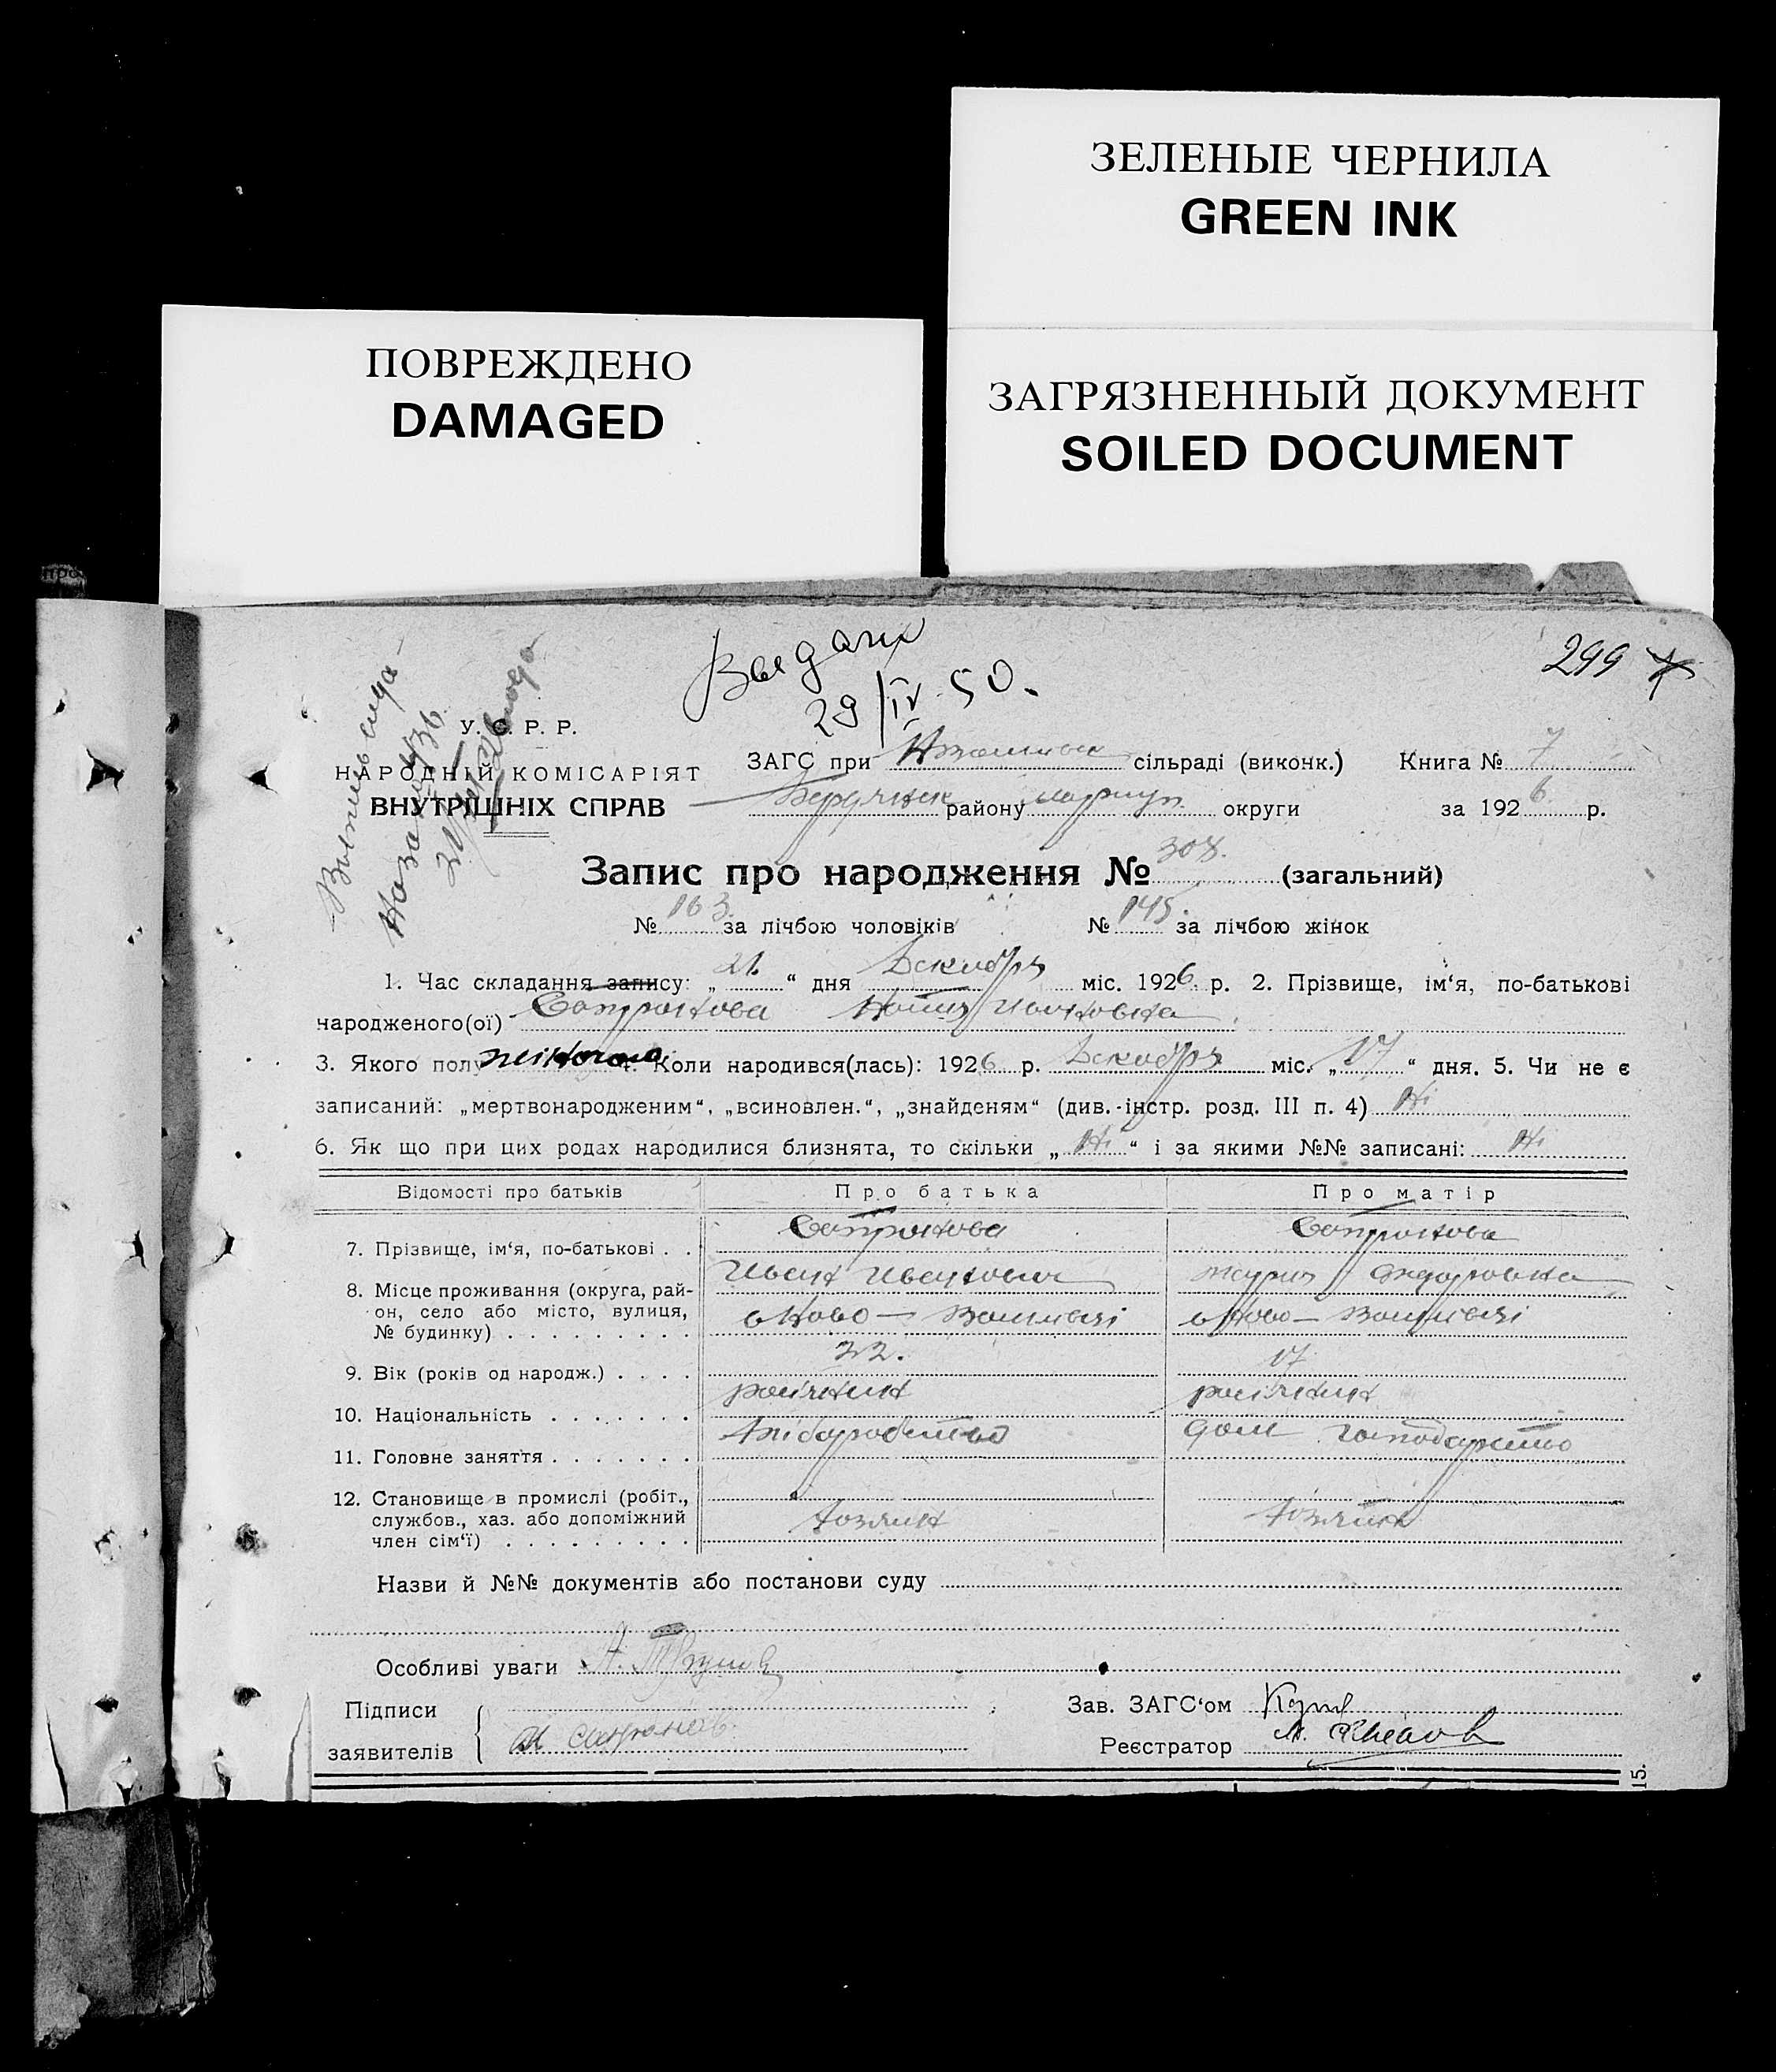 ЗЕЛЕНЫЕ ЧЕРНИЛА
GREEN INK
ПОВРЕЖДЕНО
DAMAGED
ЗАГРЯЗНЕННЫЙ ДОКУМЕНТ
SOILED DOCUMENT
299
Выдано
29/IV-50.
У. С. Р. Р.
НАРОДНІЙ КОМІСАРІЯТ
ВНУТРІШНІХ СПРАВ
ЗАГС при сільраді (виконк.) Книга № 7
Бердянск району мариуп. округи за 1926 р.
Запис про народження № 308. (загальний)
№ 163. за лічбою чоловіків № 145. за лічбою жінок
1. Час складання запису: „ 21. “ дня Декабря міс. 1926 р. 2. Прізвище, ім‘я, по-батькові
народженого(ої) Сапронова Ивановна
3. Якого полу жіночого 4. Коли народився(лась): 1926 р. Декабря міс. „ 17 “ дня. 5. Чи не є
записаний: „мертвонародженим“, „всиновлен.“, „знайденям“ (див. інстр. розд. III п. 4) Ні
6. Як що при цих родах народилися близнята, то скільки „ Ні “ і за якими №№ записані: Ні
Відомості про батьків Про батька Про матір
Сапронова Сапронова
7. Прізвище, ім‘я, по-батькові . .
Иван Иванович Мария
8. Місце проживання (округа, рай-
он, село або місто, вулиця,
№ будинку) . . . . . . . . .
22. 17
9. Вік (років од народж.) . . . .
росіянин росіянин
10. Національність . . . . . . .
Хліборобство дом господарство
11. Головне заняття . . . . . . .
12. Становище в промислі (робіт.,
службов., хаз. або допоміжний
член сім‘ї) . . . . . . . . .
хозяин хозяин
Назви й №№ документів або постанови суду
Особливі уваги
Підписи
заявителів И Сапронов.
Зав. ЗАГС‘ом
Реєстратор
15.